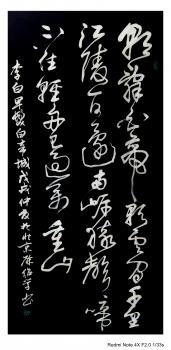 朝辭白帝彩雲間千里
江陵一日還兩岸猿聲啼
不住輕舟已過萬重山
李白早發白帝城戊戌仲夏於北京
Redmi Note 4X F2.0 1/33s